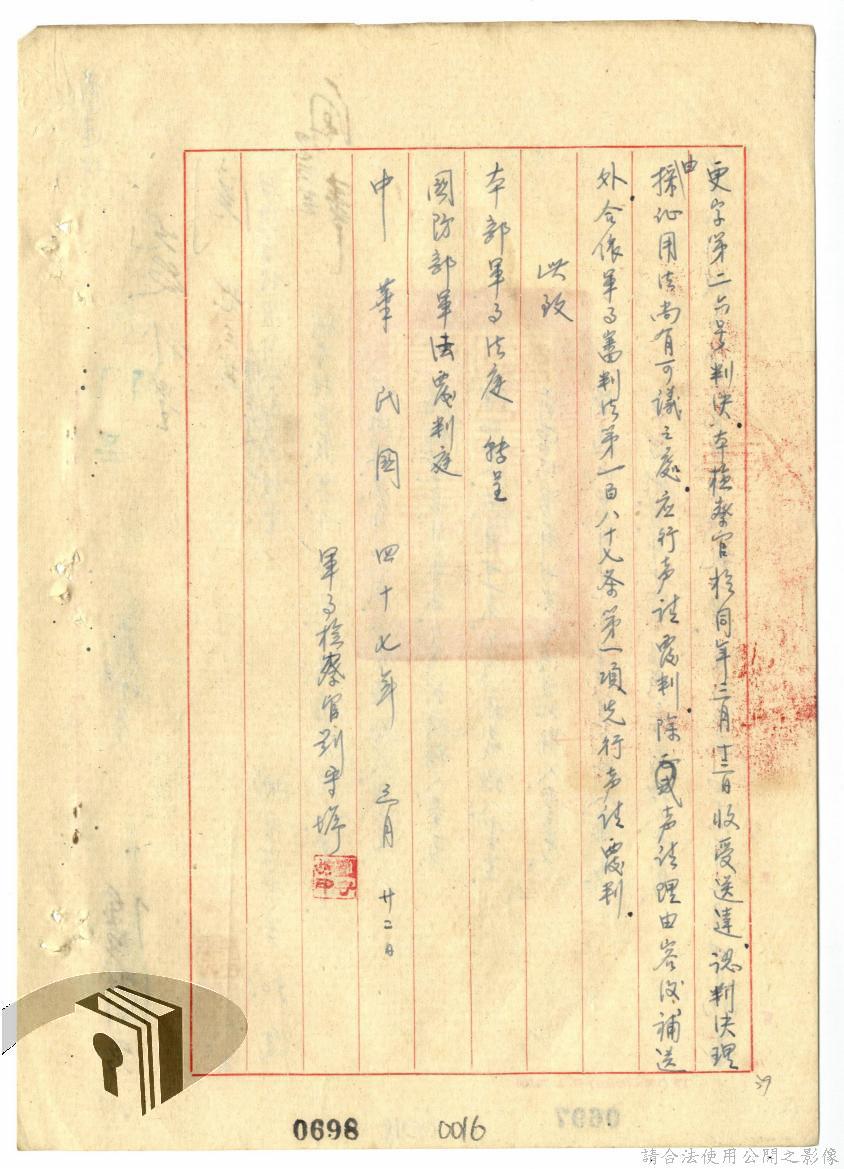 更字第二六号判決本檢察官於同年三月十三日收受送達認判決理
由採证用法尚有可議之處应行声請覆判除声請理由容後補送
外合依軍事審判法第一百八十七条第一項先行声請覆判
此致
本部軍事法庭 轉呈
國防部軍法覆判庭
中華民國四十七年三月廿二日
軍事檢察官劉守墀
39
0698
0016
0697
請合法使用公開之影像